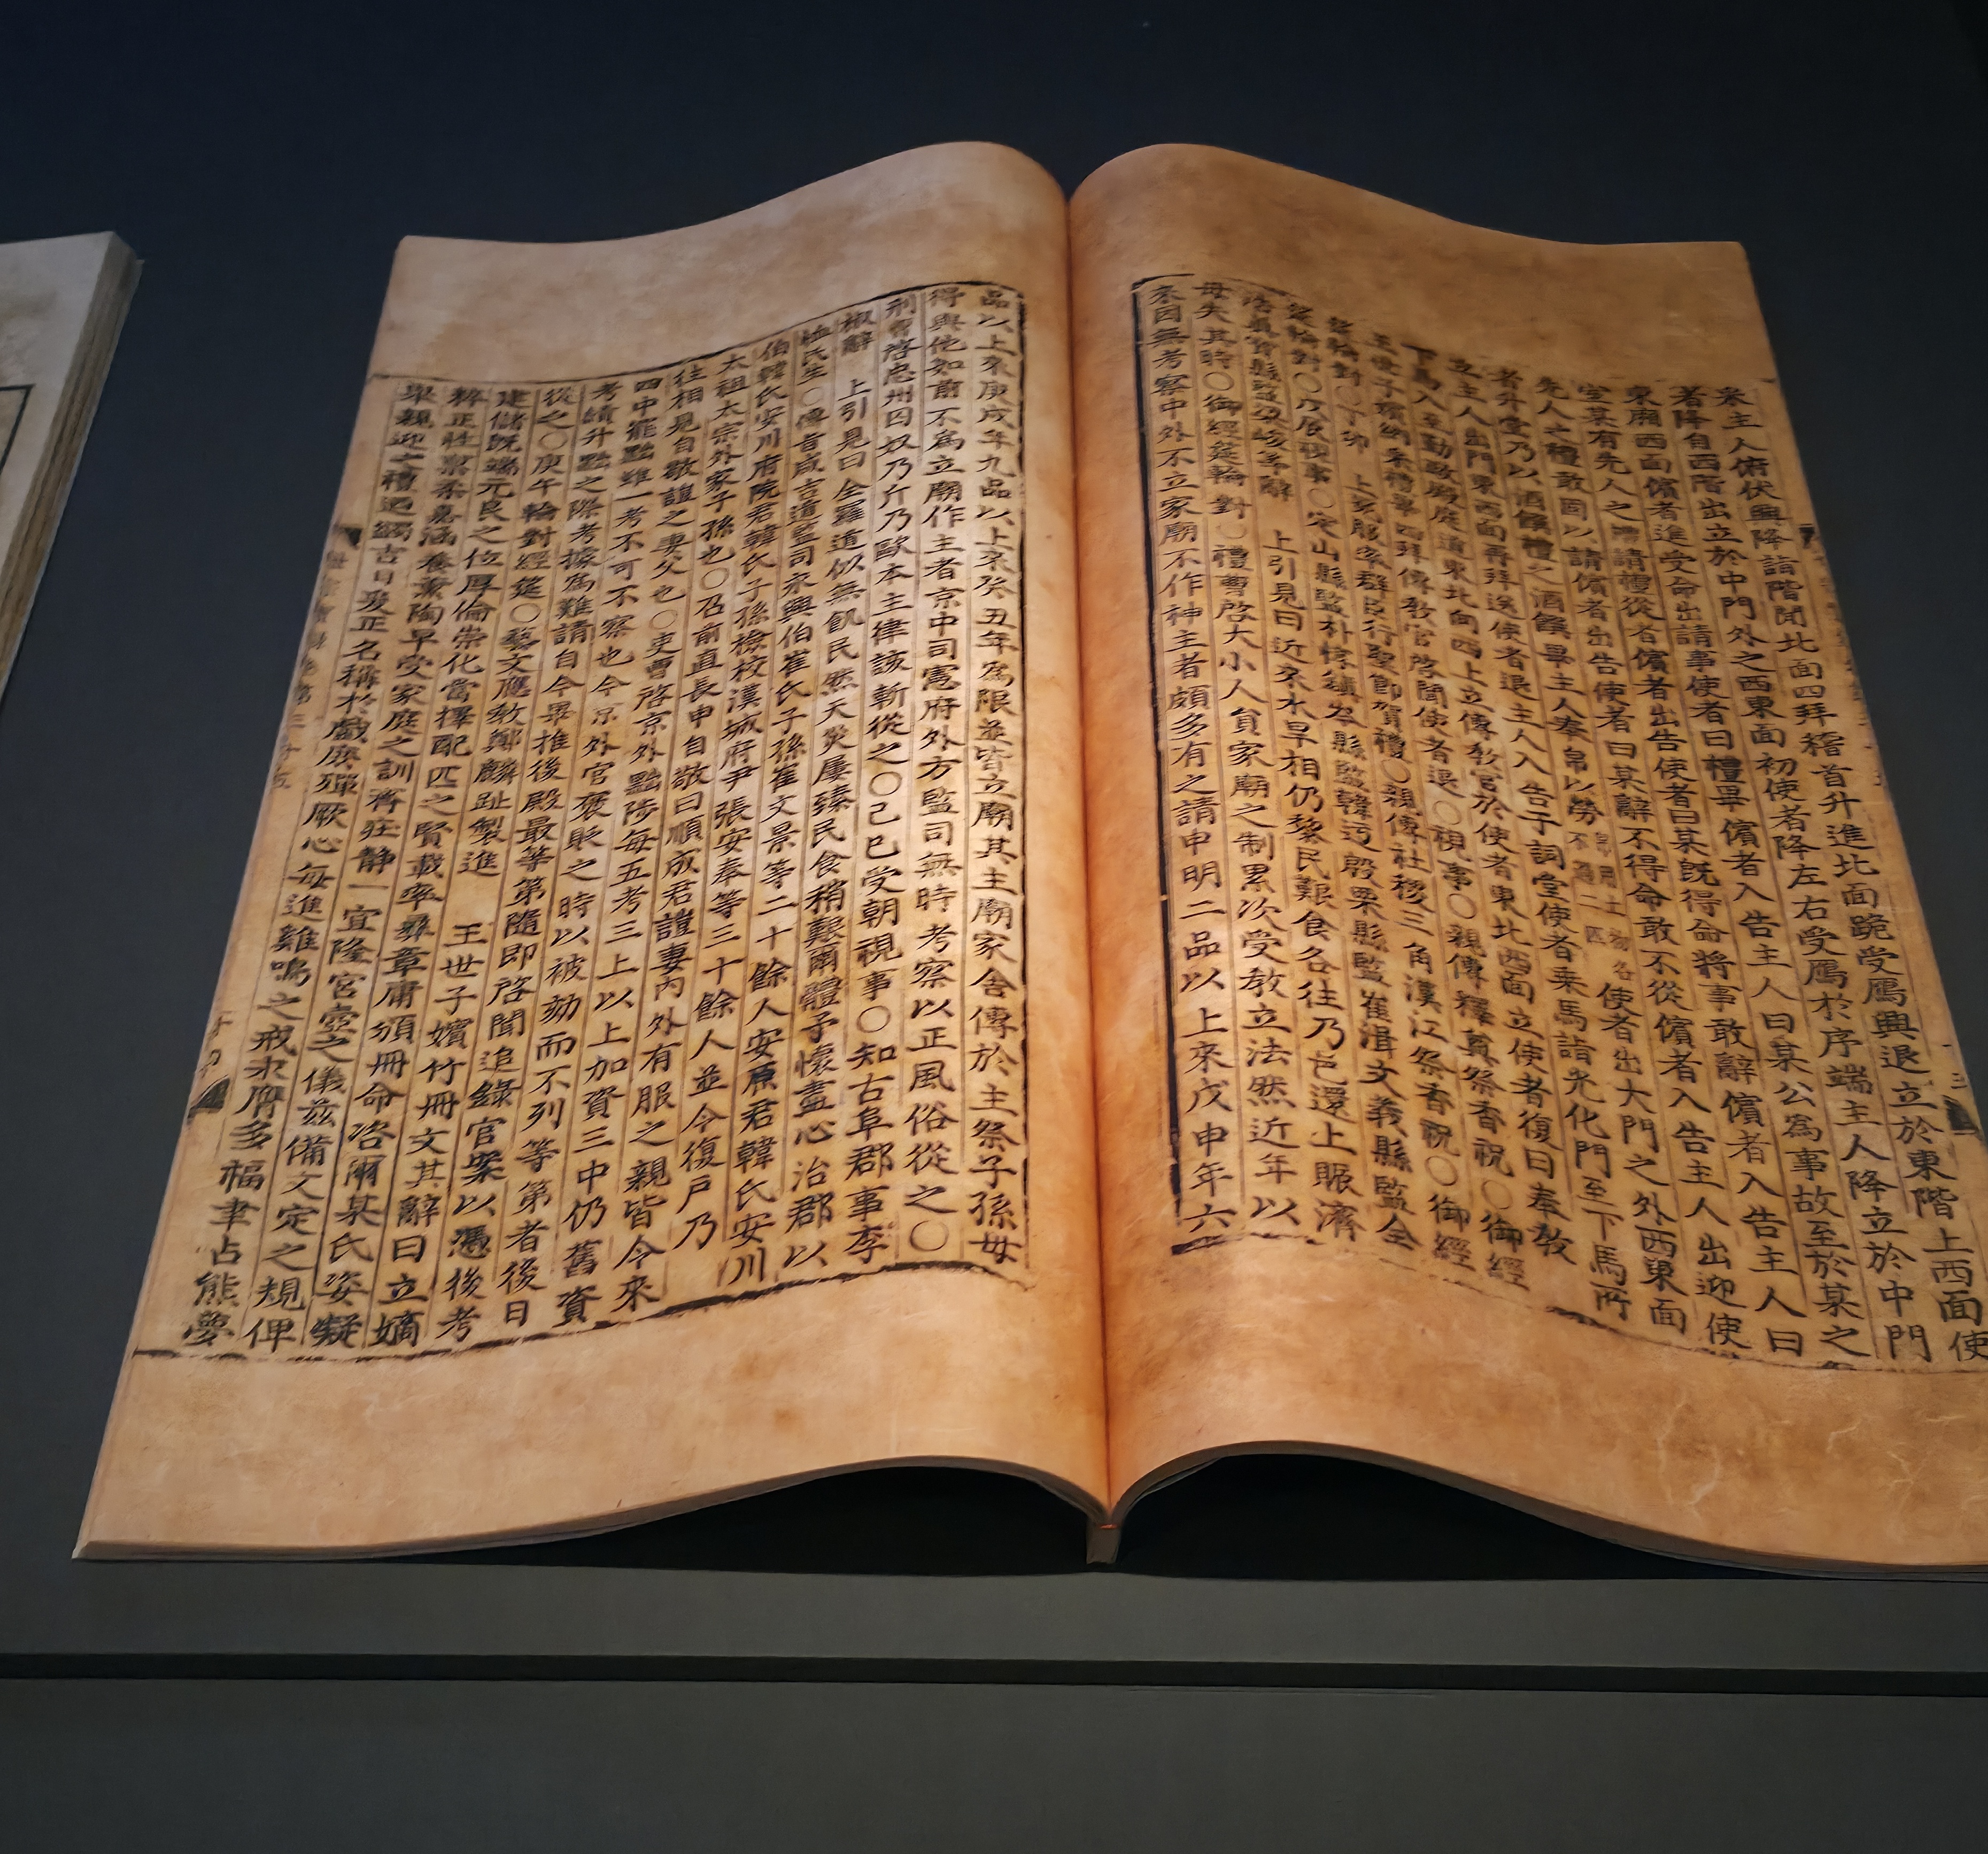 衆主人俯伏興降詣階間北面四拜稽首升進北面跪受鴈興退立於東階上西面使
者降自西階出立於中門外之西東面初使者降左右受鴈於序端主人降立於中門
東廂西面儐者進受命出請事使者曰禮畢儐者入告主人曰某公爲事故至於某之
室某有先人之禮請禮從者儐者出告使者曰某旣得命將事敢辭儐者入告主人曰
先人之禮敢固以請儐者出告使者曰某辭不得命敢不從儐者入告主人出迎使
者升堂乃以酒饌禮之酒饌畢主人奉帛以勞帛用土物各不過二匹使者出大門之外西東面
立主人出門東西面再拜送使者退主人入告于祠堂使者乘馬詣光化門至下馬所
下馬入至勤政殿庭道東北向四上立傳敎官於使者東北西面立使者復曰奉敎
王使子嬪納采禮畢四拜傳敎官啓聞使者退○視事○親傳釋奠祭香祝○御經
筵輪對○丁卯 上冕服率群臣行聖節賀禮○親傳社稷三角漢江祭香祝○御經
筵輪對○戊辰視事○定山縣監朴 縣監韓 殷栗縣監崔渭文義縣監全
浩眞寶縣監梁峻等辭 上引見曰近來水旱相仍黎民艱食各往乃邑還上賑濟
毋失其時○御經筵輪對○禮曹啓大小人員家廟之制累次受敎立法然近年以
來因無考察中外不立家廟不作神主者頗多有之請申明二品以上來戊申年六
品以上來庚戌年九品以上來癸丑年爲限並皆立廟其主廟家舍傳於主祭子孫毋
得與他如前不爲立廟作主者京中司憲府外方監司無時考察以正風俗從之○
刑曹啓忠州囚奴乃斤乃歐本主律該斬從之○己巳受朝視事○知古阜郡事李
椒辭 上引見曰全羅道似無飢民然天災屢臻民食稍艱爾體予懷盡心治郡以
恤民生○傳旨咸吉道監司永興伯崔氏子孫崔文景等二十餘人安原君韓氏安川
伯韓氏安川府院君韓氏子孫檢校漢城府尹張安奉等三十餘人並令復戶乃
太祖太宗外家子孫也○召前直長申自敬曰順成君𧩙妻內外有服之親皆令來
往相見自敬𧩙之妻父也○吏曹啓京外官黜陟每五考三上以上加資三中仍舊資
四中罷黜雖一考不可不察也今京外官褒貶之時以被劾而不列等第者後日
考績升黜之際考據爲難請自今畢推後殿最等第隨即啓聞追錄官案以憑後考
從之○庚午輪對經筵○藝文應敎鄭麟趾製進 王世子嬪竹冊文其辭曰立嫡
建儲旣端元良之位厚倫崇化當擇配匹之賢載率彝章庸頒冊命咨爾某氏姿凝
粹正性稟柔嘉涵養薰陶早受家庭之訓齊莊靜一宜隆宮壼之儀茲備文定之規俾
擧親迎之禮迺蠲吉日爰正名稱於戲庶殫厥心每進雞鳴之戒永膺多福聿占熊夢